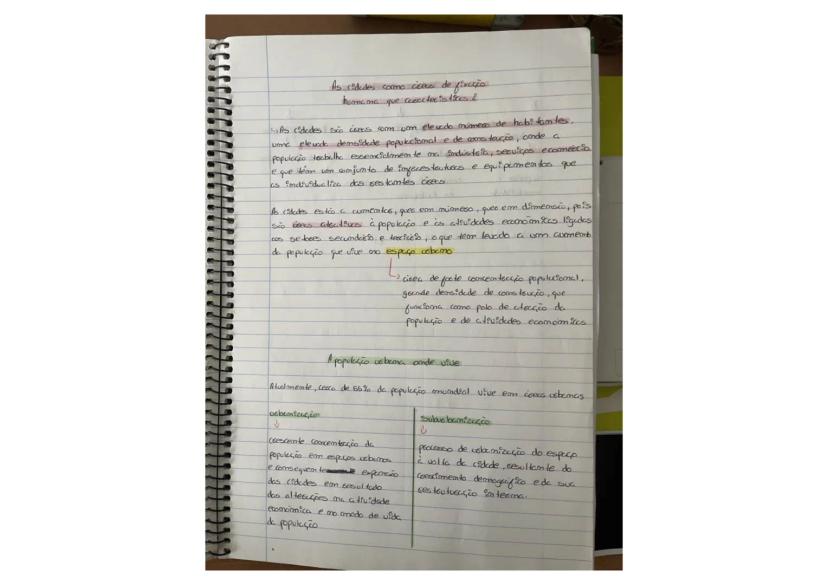 As cidades como áreas de fixação
humana que características?
As cidades são áreas com um elevado número de habitantes,
uma elevada densidade populacional e de construção, onde a
população trabalha essencialmente na indústria, serviços e comércio
e que têm um conjunto de infraestruturas e equipamentos que
as individualiza das restantes áreas.
As cidades estão a aumentar, quer em número, quer em dimensão, pois
são áreas atrativas à população e às atividades económicas ligadas
aos setores secundário e terciário, o que têm levado a um aumento
da população que vive no espaço urbano
área de forte concentração populacional,
grande densidade de construção, que
funciona como polo de atração da
população e de atividades económicas
A população urbana onde vive
Atualmente, cerca de 55% da população mundial vive em áreas urbanas
urbanização
crescente concentração da
população em espaços urbanos
e consequente expansão
das cidades em resultado
das alterações na atividade
económica e no modo de vida
da população
Suburbanização
processo de urbanização do espaço
à volta da cidade, resultante do
crescimento demográfico e da sua
restruturação interna.